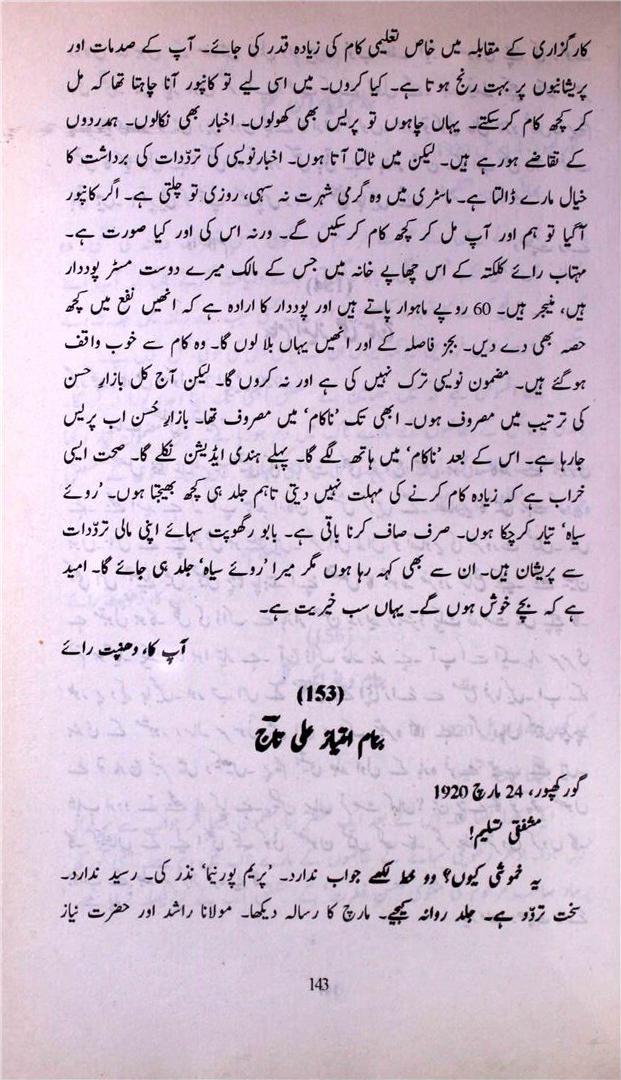 کارگزاری کے مقابلہ میں خاص تعلیمی کام کی زیادہ قدر کی جائے۔ آپ کے صدمات اور
پریشانیوں پر بہت رنج ہوتا ہے۔ کیا کروں۔ میں اسی لیے تو کانپور آنا چاہتا تھا کہ مل
کر کچھ کام کرسکتے۔ یہاں چاہوں تو پریس بھی کھولوں۔ اخبار بھی نکالوں۔ ہمدردوں
کے تقاضے ہورہے ہیں۔ لیکن میں ٹالتا آتا ہوں۔ اخبارنویسی کی تردّدات کی برداشت کا
خیال مارے ڈالتا ہے۔ ماسٹری میں وہ گرمی شہرت نہ سہی، روزی تو چلتی ہے۔ اگر کانپور
آگیا تو ہم اور آپ مل کر کچھ کام کرسکیں گے۔ ورنہ اس کی اور کیا صورت ہے۔
مہتاب رائے کلکتہ کے اس چھاپے خانہ میں جس کے مالک میرے دوست مسٹر پوددار
ہیں، منیجر ہیں۔ 60 روپے ماہوار پاتے ہیں اور پوددار کا ارادہ ہے کہ انھیں نفع میں کچھ
حصہ بھی دے دیں۔ بجز فاصلہ کے اور انھیں یہاں بلا لوں گا۔ وہ کام سے خوب واقف
ہوگئے ہیں۔ مضمون نویسی ترک نہیں کی ہے اور نہ کروں گا۔ لیکن آج کل بازارِ حسن
کی ترتیب میں مصروف ہوں۔ ابھی تک 'ناکام' میں مصروف تھا۔ بازارِ حُسن اب پریس
جارہا ہے۔ اس کے بعد 'ناکام' میں ہاتھ لگے گا۔ پہلے ہندی ایڈیشن نکلے گا۔ صحت ایسی
خراب ہے کہ زیادہ کام کرنے کی مہلت نہیں دیتی تاہم جلد ہی کچھ بھیجتا ہوں۔ 'روئے
سیاہ' تیار کرچکا ہوں۔ صرف صاف کرنا باقی ہے۔ بابو رگھوپت سہائے اپنی مالی تردّدات
سے پریشان ہیں۔ ان سے بھی کہہ رہا ہوں مگر میرا 'روئے سیاہ' جلد ہی جائے گا۔ امید
ہے کہ بچے خوش ہوں گے۔ یہاں سب خیریت ہے۔
آپ کا، دھنپت رائے
(153)
بنام امتیاز علی تاجؔ
گورکھپور، 24 مارچ 1920
مشفقی تسلیم!
یہ خموشی کیوں؟ دو خط لکھے جواب ندارد۔ 'پریم پورنیما' نذر کی۔ رسید ندارد۔
سخت تردّد ہے۔ جلد روانہ کیجیے۔ مارچ کا رسالہ دیکھا۔ مولانا راشد اور حضرت نیاز
143